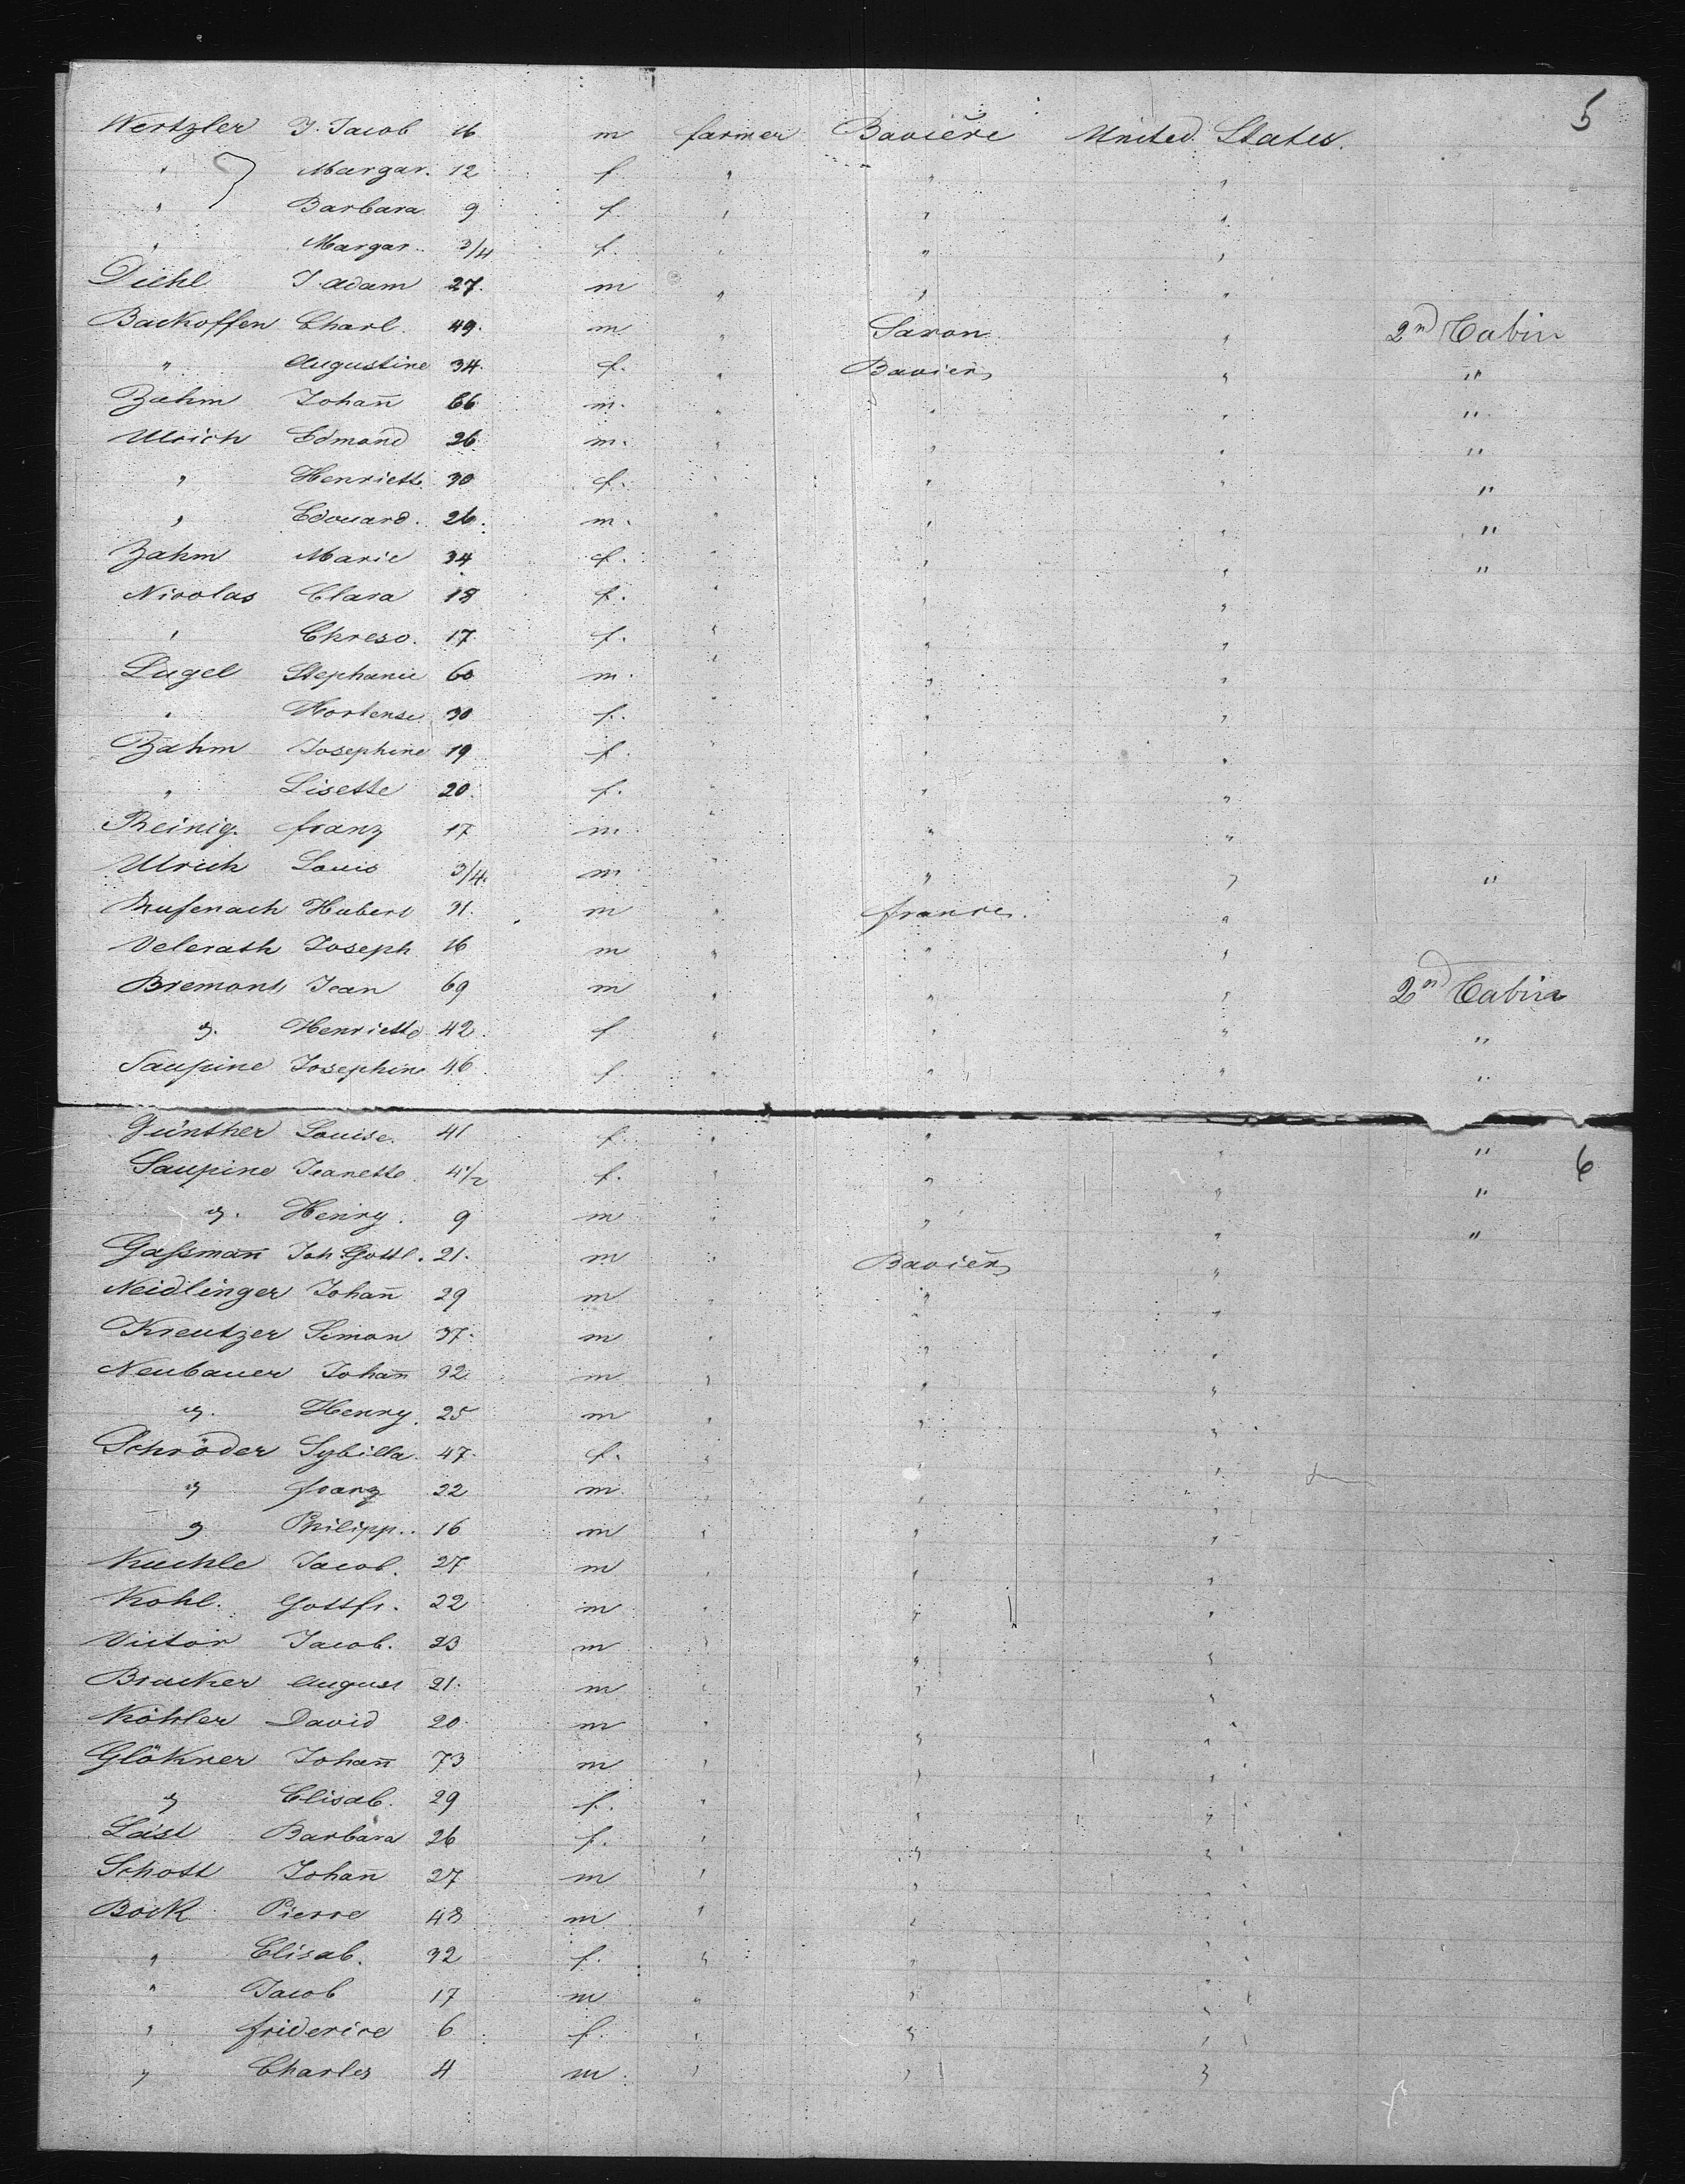 5
Wertzler J. Jacob 16 m farmer Bavière United States.
" Margar. 12 f " " "
" Barbara 9 f. " " "
" Margar. 3/4 f. " " "
Diehl J. Adam 27. m " " "
Backoffen Charl. 49. m " Saxon " 2nd Cabin
" Augustine 34. f. " Bavière " "
Zahm Johan̄ 66 m. " " " "
Ulrich Edmond 26 m. " " " "
" Henriette 30 f. " " " "
" Edouard. 26. m. " " " "
Zahm Marie 34 f. " " " "
Nicolas Clara 18 f. " " "
" Chreso. 17 f. " " "
Lugel Stephanie 60 m. " " "
" Hortense 30 f. " " "
Zahm Josephine 19 f. " " "
" Lisette 20. f. " " "
Reinig. franz 17 m " " "
Ulrich Louis 3/4. m " " " "
Hubert 31. m " france. "
Velerath Joseph 16 m " " "
Bremont Jean 69 m " " " 2nd Cabin
" Henriette 42 f " " " "
Saupine Josephine 46 f " " " "
Günther Louise. 41 f. " " " "
6
Saupine Jeanette 4 1/2 f. " " " "
" Henry. 9 m " " " "
Gaſsman̄ Joh Gottl. 21. m " Bavière "
Neidlinger Johan̄ 29 m " " "
Kreutzer Simon 37. m " " "
Neubauer Johan̄ 32 m " " "
" Henry. 25 m " " "
Schröder Sybilla. 47. f. " " "
" franz 22 m " " "
" Philipp. 16 m " " "
Kuchle Jacob. 27 m " " "
Kohl. Gottfr. 22 m " " "
Victor Jacob. 23 m " " "
Bracker August 21. m " " "
Köhler David 20. m " " "
Glökner Johan̄ 73 m " " "
" Elisab. 29 f. " " "
Läst Barbara 26 f. " " "
Schott Johan̄ 27 m " " "
Bock Pierre 48 m " " "
" Elisab. 32 f. " " "
" Jacob 17 m " " "
" friderice 6 f. " " "
" Charles 4 m " " "